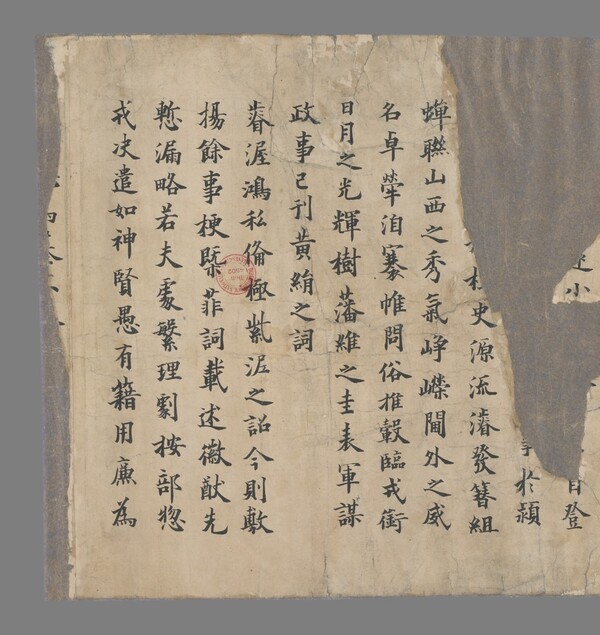 小日登
於潁
柱史源流濬發簪組
蟬聯山西之秀氣崢嶸閫外之威
名卓犖洎褰帷問俗推轂臨戎衝
日月之光輝樹藩維之圭表軍謀
政事已刊黃絹之詞
眷渥鴻私倫極紫泥之詔今則敷
揚餘事梗槩菲詞載述徽猷先
慙漏略若夫處繁理劇按部惣
戎决遣如神賢愚有籍用廉為